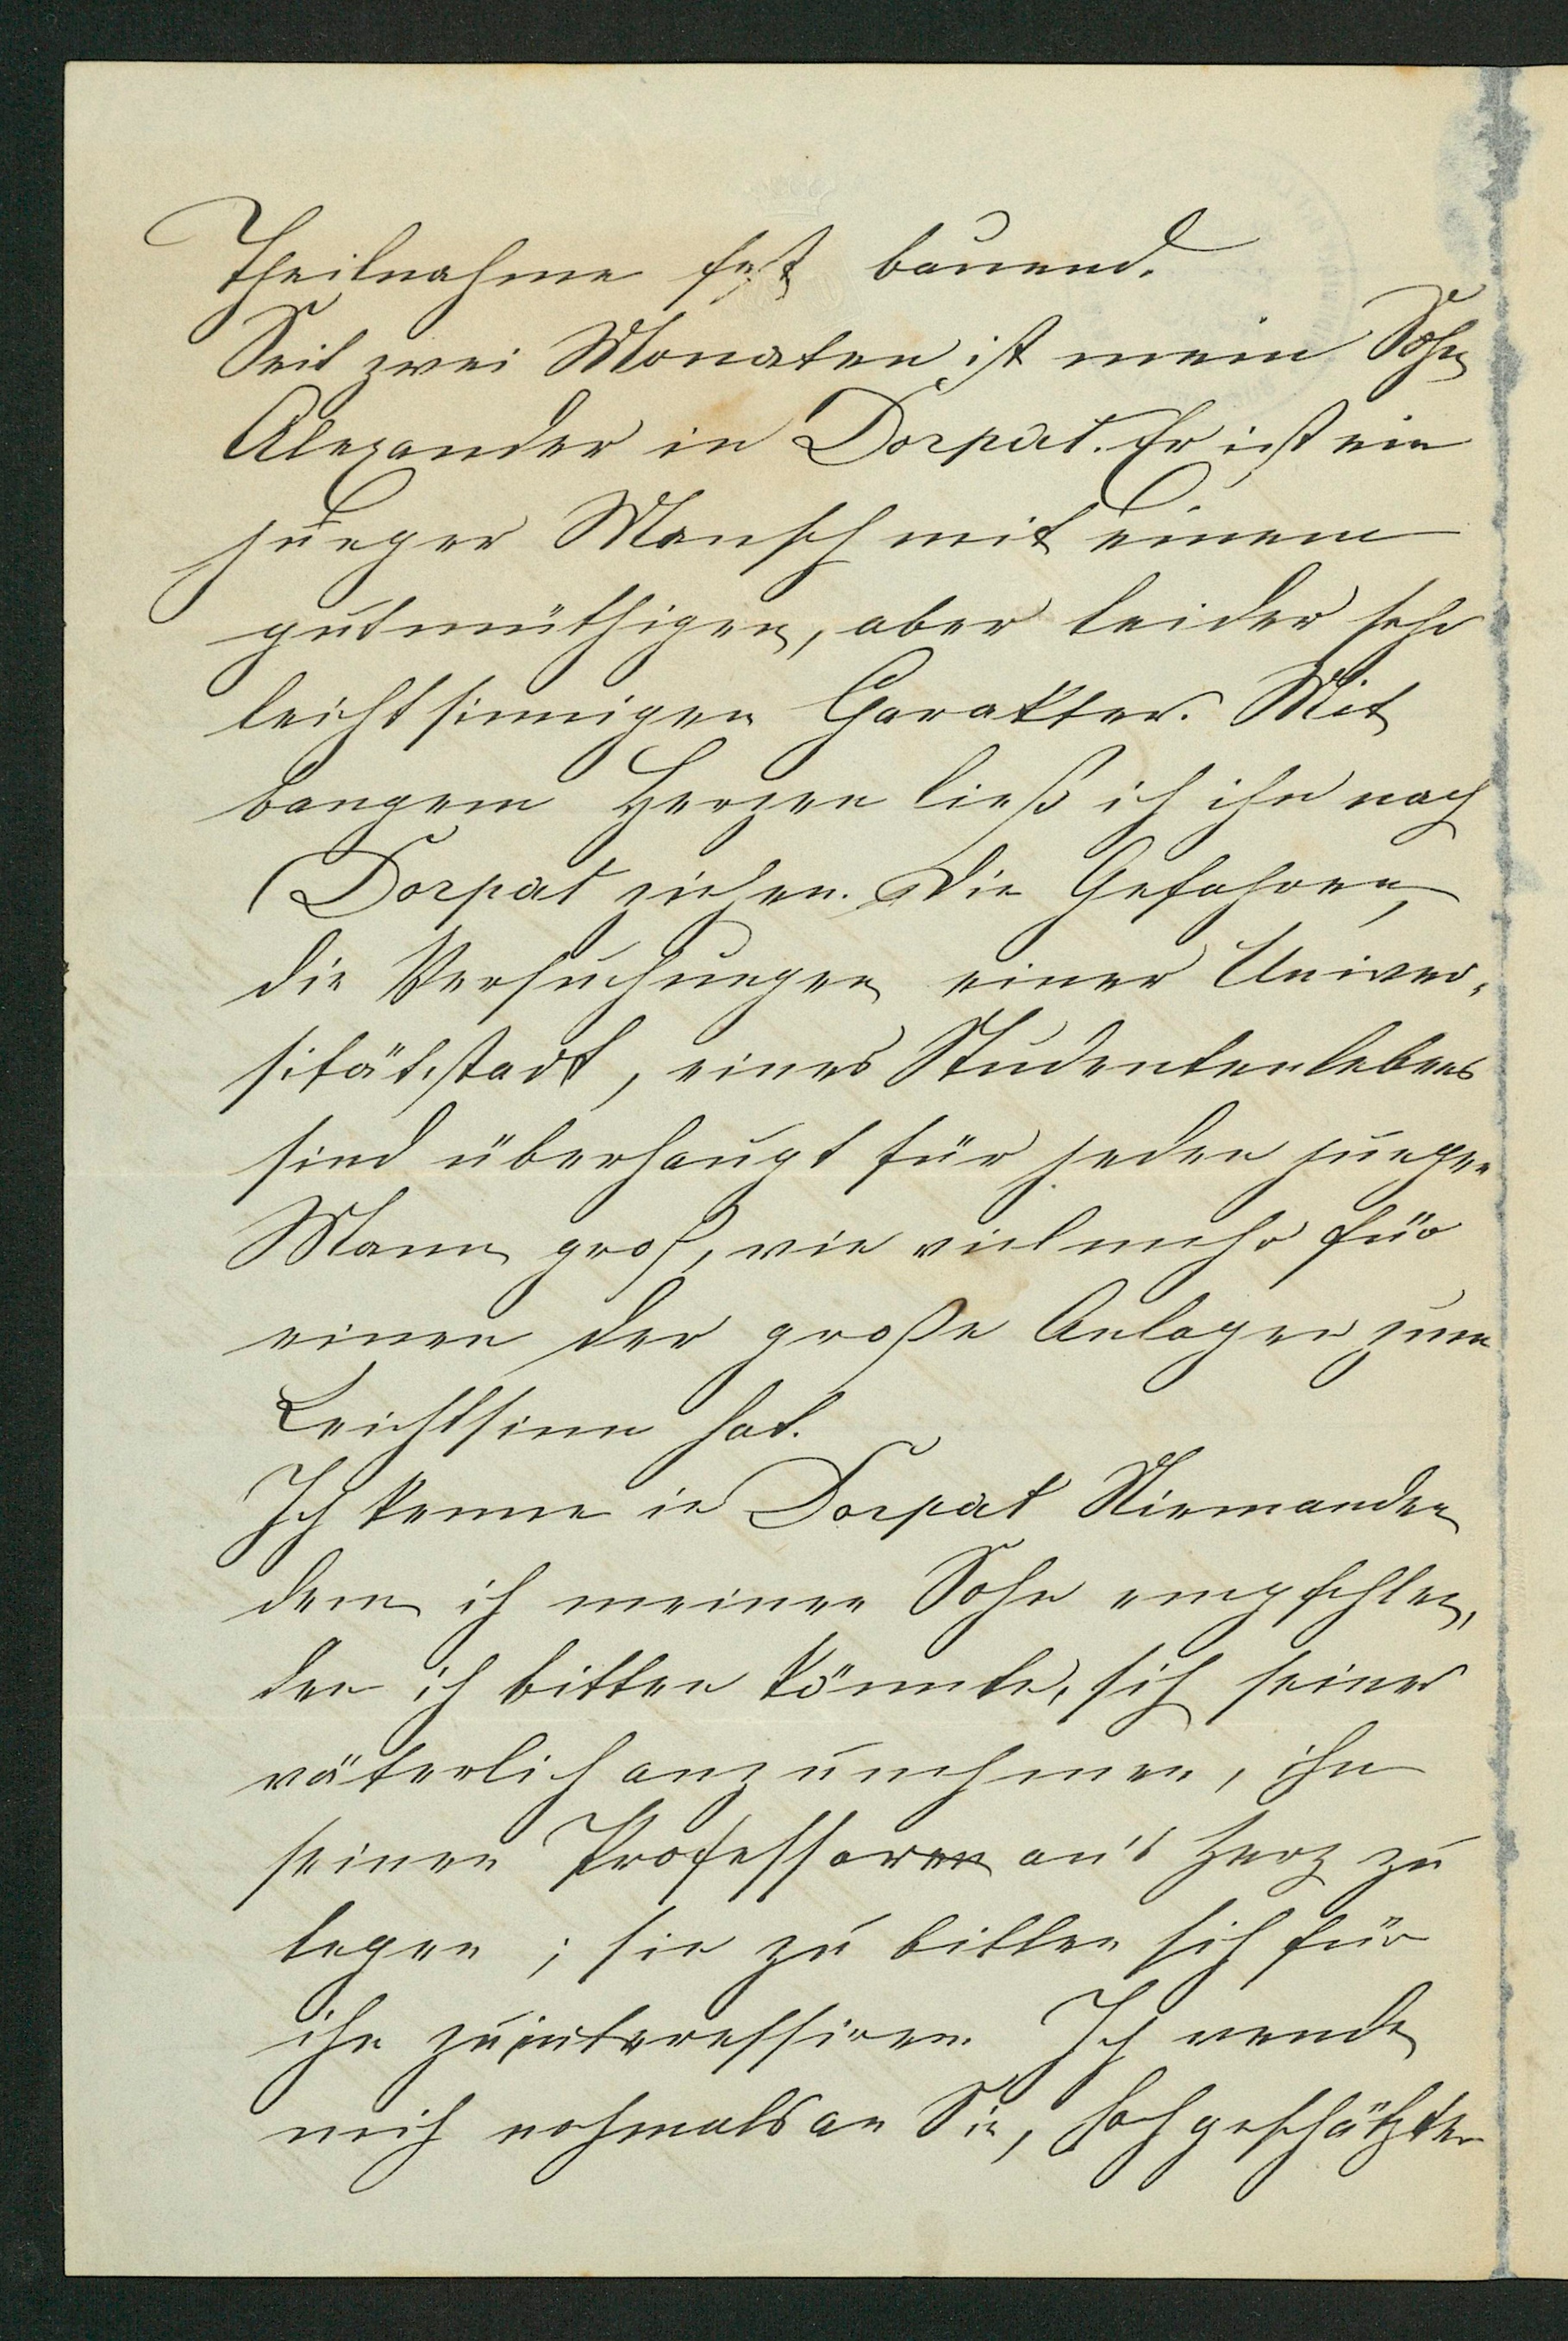 Theilnahme fest bauend.
Seit zwei Monaten ist mein Sohn
Alexander in Dorpat. Er ist ein
junger Mensch mit einem
gutmüthigen, aber leider sehr
leichtsinnigen Charakter. Mit
bangem Herzen ließ ich ihn nach
Dorpat ziehen. Die Gefahren,
die Versuchungen einer Univer-
sitätsstadt, eines Studentenlebens
sind überhaupt für jeden jungen
Mann groß, wie vielmehr für
einen der große Anlagen zum
Leichtsinn hat.
Ich kenne in Dorpat Niemanden
dem ich meinen Sohn empfehlen,
den ich bitten könnte, sich seiner
väterlich anzunehmen, ihn
seinen Professoren an's Herz zu
legen; sie zu bitten sich für
ihn zu interessiren. Ich wende
mich nochmals an Sie, hochgeschätzter